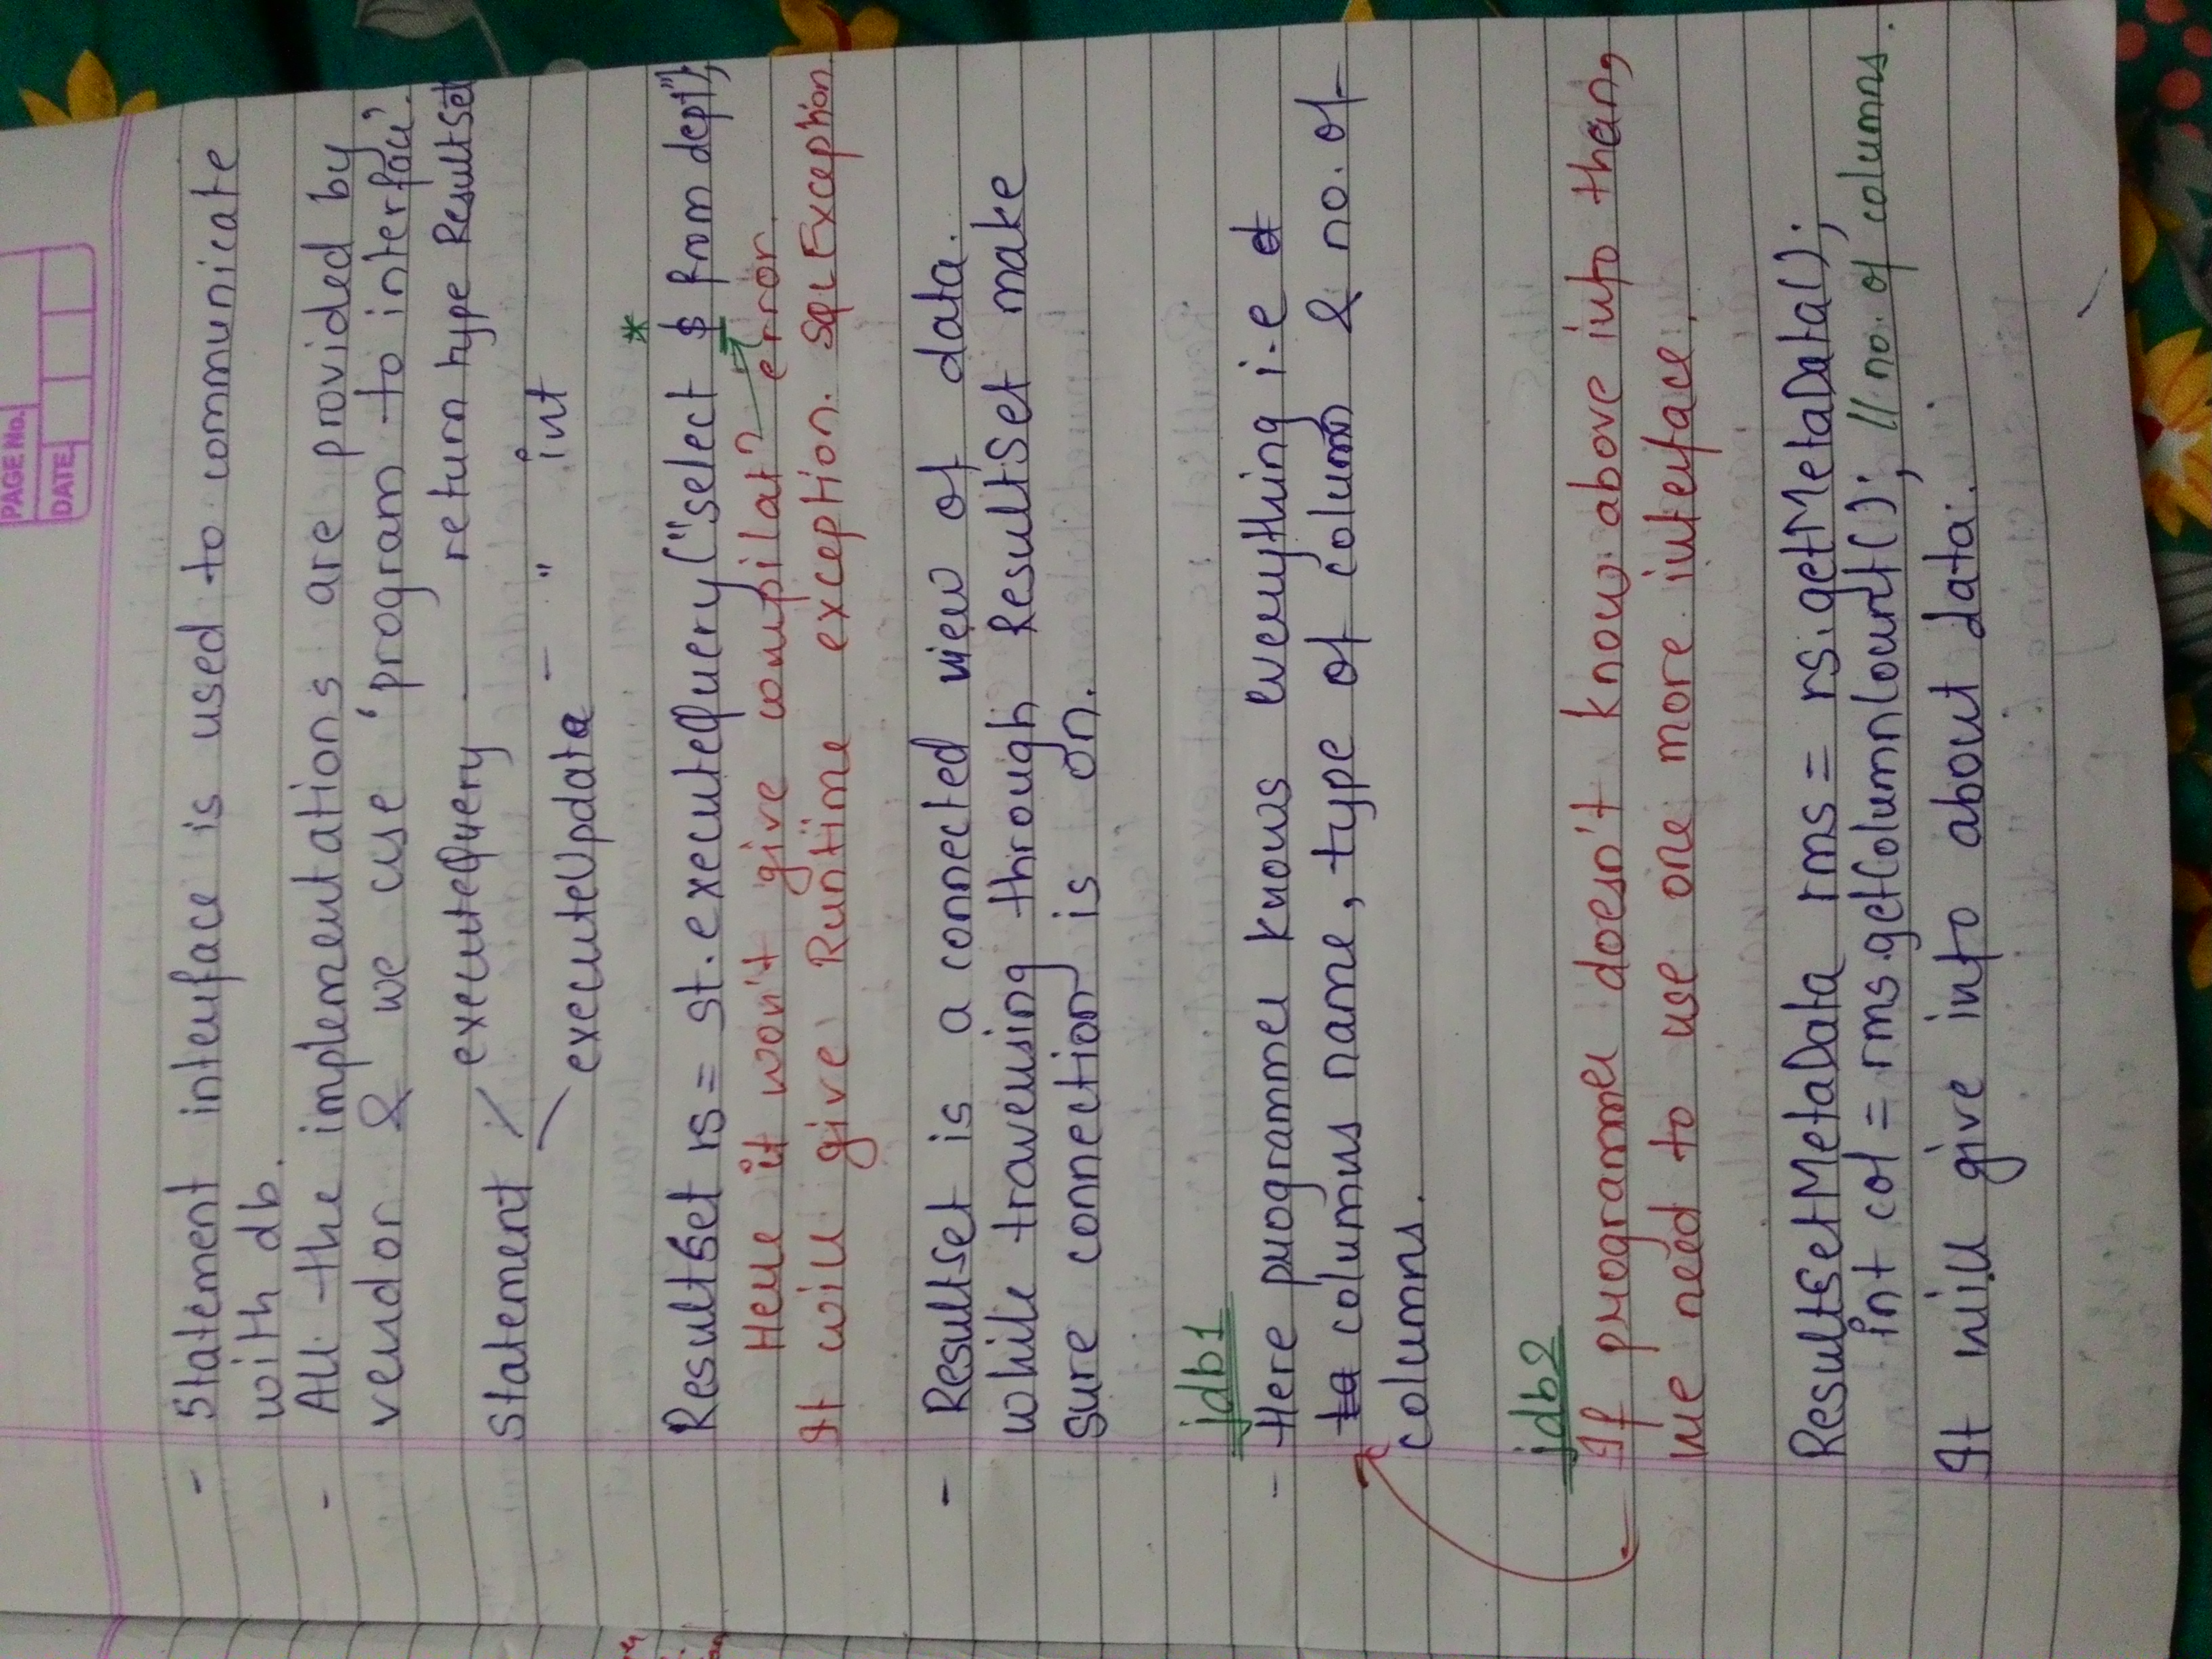 PAGE No.
DATE
- Statement interface is used to communicate
with db.
- All the implementations are provided by
vendor & we use 'program to interface'.
executeQuery — return type ResultSet
Statement
executeUpdate — " int
*
ResultSet rs = st.executeQuery("select $ from dept");
Here it won't give compilatn error.
It will give Runtime exception. SQLException
- ResultSet is a connected view of data.
while traversing through ResultSet make
sure connection is on.
jdb1
- Here programmer knows everything i.e
columns name, type of column & no. of
columns.
jdb2
If programmer doesn't know above info then,
we need to use one more interface.
ResultSetMetaData rms = rs.getMetaData();
int col = rms.getColumnCount(); // no. of columns.
It will give info about data.